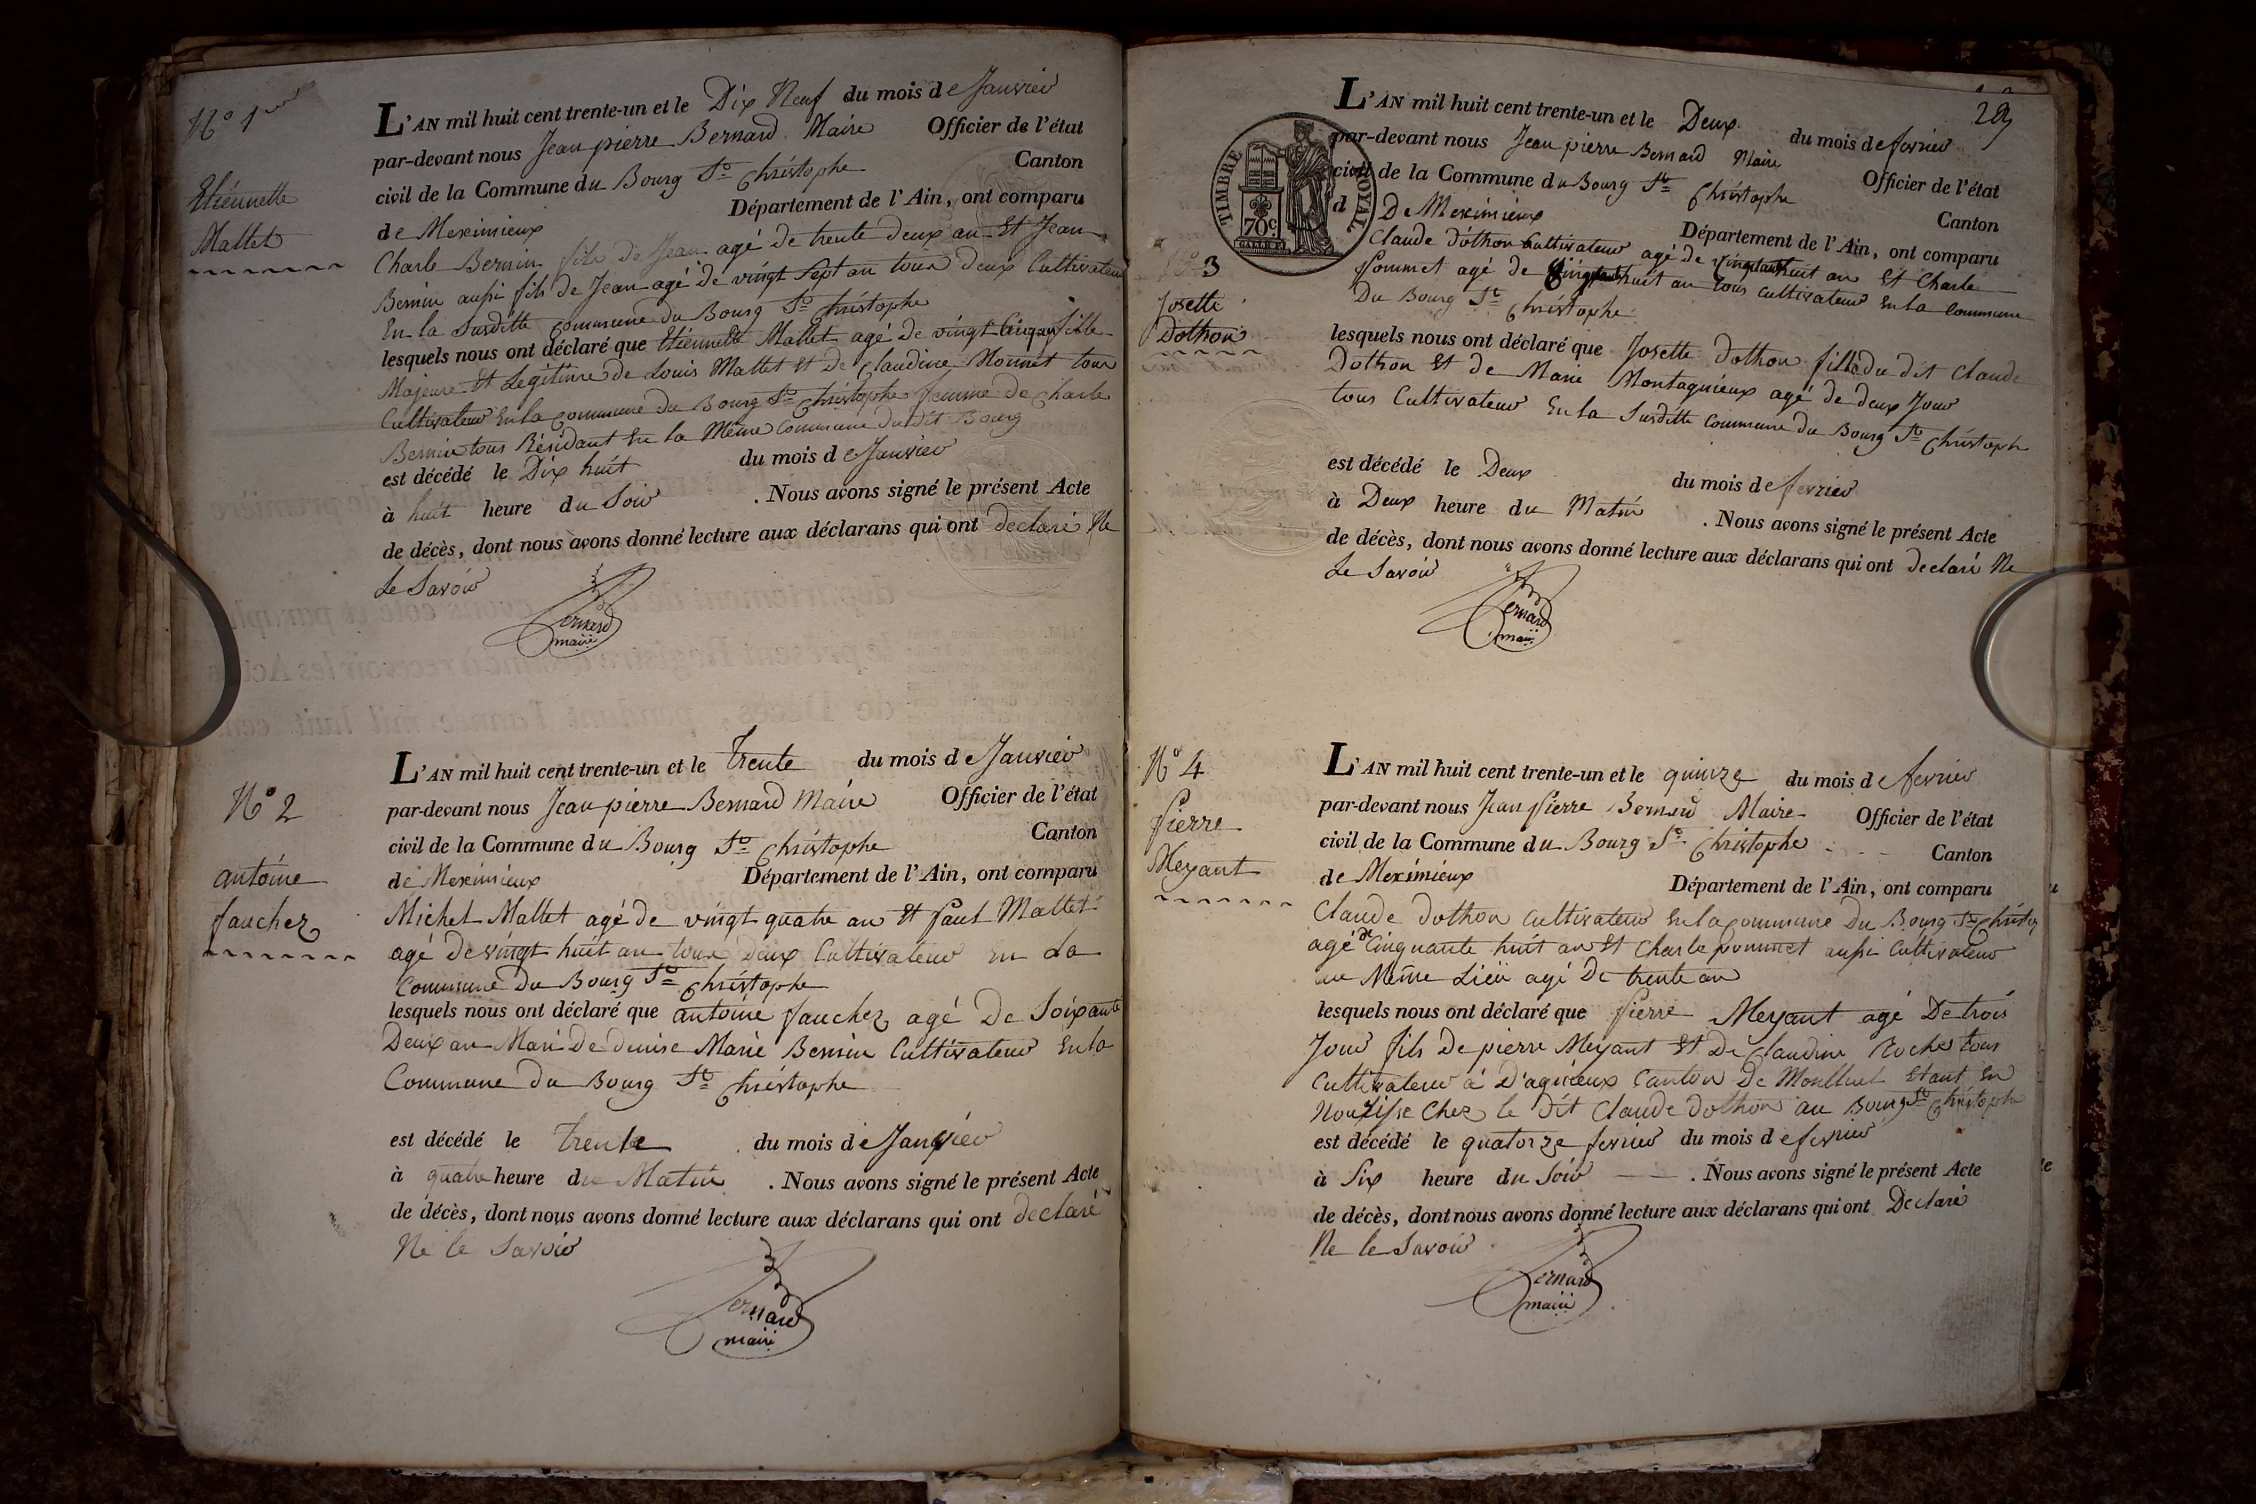 N° 1er
Etiennette
Mallet
L'AN mil huit cent trente-un et le Dix Neuf du mois de Janvier
par-devant nous Jean pierre Bernard Maire Officier de l'état
civil de la Commune du Bourg St Christophe Canton
de Meximieux Département de l'Ain, ont comparu
Charle Bernin fils de Jean agé de trente deux an Et Jean
Bernin aussi fils de Jean agé de vingt sept an tous deux Cultivateur
En la Susditte commune du Bourg St Christophe
lesquels nous ont déclaré que Etiennette Mallet agé de vingt Cinq an fille
Majeure Et Legitime de Louis Mallet Et De Claudine Monnet tous
Cultivateur En la Commune du Bourg St Christophe femme de Charle
Bernin tous Résidant En la Même Commune du dit Bourg
est décédé le Dix huit du mois de Janvier
à huit heure du Soir . Nous avons signé le présent Acte
de décès, dont nous avons donné lecture aux déclarans qui ont declaré Ne
Le Savoir
Bernard
maire
N° 2
antoine
fauchez
L'AN mil huit cent trente-un et le Trente du mois de Janvier
par-devant nous Jean pierre Bernard Maire Officier de l'état
civil de la Commune du Bourg St Christophe Canton
de Meximieux Département de l'Ain, ont comparu
Michel Mallet agé de vingt quatre an Et paul Mallet
agé de vingt huit an tous deux Cultivateur en La
Commune Du Bourg St Christophe
lesquels nous ont déclaré que antoine fauchez agé De Soixante
Deux an Mari De denise Marie Bernin Cultivateur En la
Commune du Bourg St Christophe
est décédé le trente du mois de Janvier
à quatre heure du Matin . Nous avons signé le présent Acte
de décès, dont nous avons donné lecture aux déclarans qui ont declaré
Ne le Savoir
Bernard
maire
29
TIMBRE ROYAL
70c.
N° 3
Josette
Dothon
L'AN mil huit cent trente-un et le Deux du mois de fevrier
par-devant nous Jean pierre Bernard Maire Officier de l'état
civil de la Commune du Bourg St Christophe Canton
d De Meximieux Département de l'Ain, ont comparu
Claude Dothon Cultivateur agé de huit an Et Charle
Pommet agé de huit an tous cultivateur En la commune
Du Bourg St Christophe
lesquels nous ont déclaré que Josette Dothon fille du dit Claude
Dothon Et de Marie Montagnieux agé de deux Jour
tous Cultivateur En la Susditte commune du Bourg St Christophe
est décédé le Deux du mois de fevrier
à Deux heure du Matin . Nous avons signé le présent Acte
de décès, dont nous avons donné lecture aux déclarans qui ont declaré Ne
Le Savoir
Bernard
maire
N° 4
Pierre
Meyant
L'AN mil huit cent trente-un et le quinze du mois de fevrier
par-devant nous Jean Pierre Bernard Maire Officier de l'état
civil de la Commune du Bourg St Christophe Canton
de Meximieux Département de l'Ain, ont comparu
Claude Dothon Cultivateur En la commune Du Bourg St Christop
agé de Cinquante huit an Et Charle pommet aussi Cultivateur
au Même Lieu agé De trente an
lesquels nous ont déclaré que Pierre Meyant agé De trois
Jour fils De pierre Meyant Et De Claudine Rochet tous
Cultivateur à D'agnieux Canton De Montluel Etant En
Nourisse Chez le dit Claude Dothon au Bourg St Christophe
est décédé le quatorze fevrier du mois de fevrier
à Six heure du Soir . Nous avons signé le présent Acte
de décès, dont nous avons donné lecture aux déclarans qui ont Declaré
Ne le Savoir
Bernard
maire